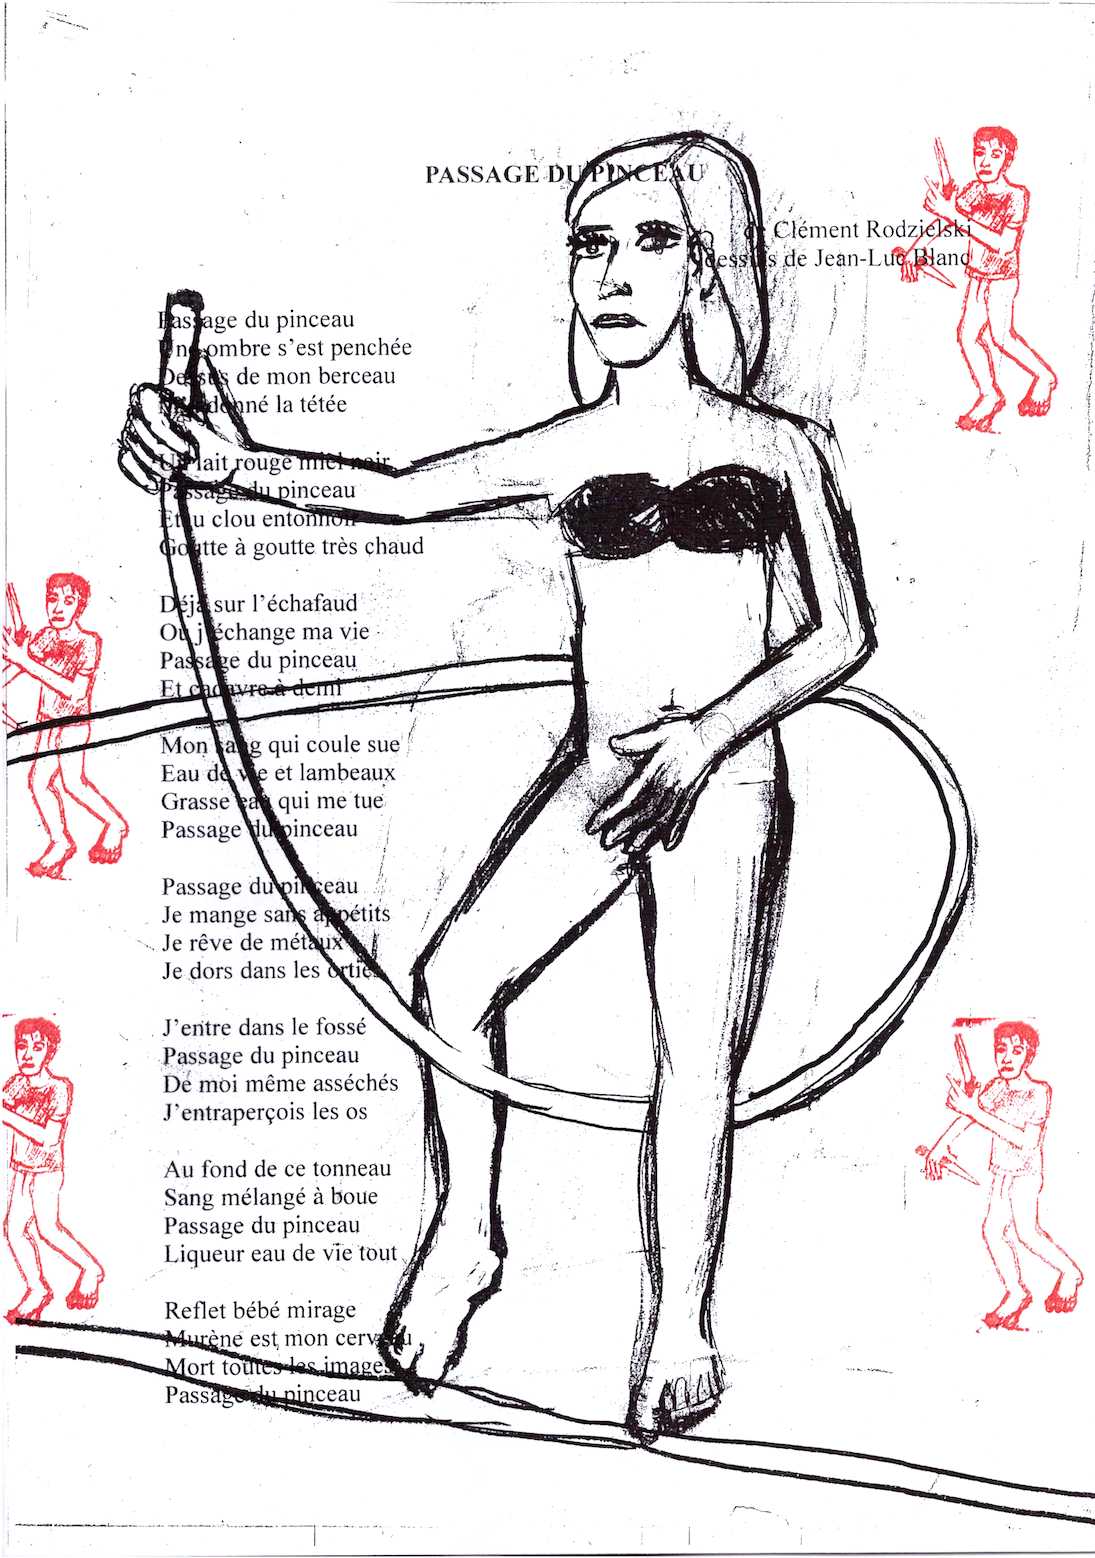 PASSAGE DU PINCEAU
de Clément Rodzielski
dessins de Jean-Luc Blanc
Passage du pinceau
Une ombre s’est penchée
Dessus de mon berceau
M’a donné la tétée
Un lait rouge miel noir
Passage du pinceau
Et au clou entonnoir
Goutte à goutte très chaud
Déjà sur l’échafaud
Où j’échange ma vie
Passage du pinceau
Et cadavre à demi
Mon sang qui coule sue
Eau de vie et lambeaux
Grasse eau qui me tue
Passage du pinceau
Passage du pinceau
Je mange sans appétits
Je rêve de métaux
Je dors dans les orties
J’entre dans le fossé
Passage du pinceau
De moi même asséchés
J’entraperçois les os
Au fond de ce tonneau
Sang mélangé à boue
Passage du pinceau
Liqueur eau de vie tout
Reflet bébé mirage
Murène est mon cerveau
Mort toutes les images
Passage du pinceau